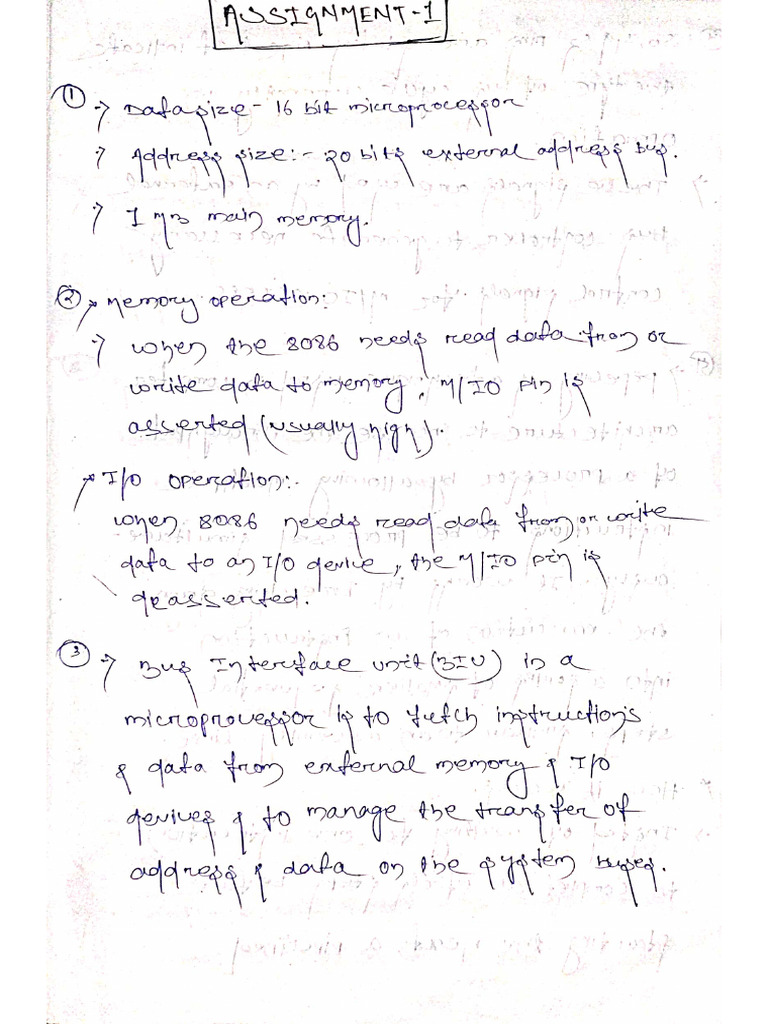 ASSIGNMENT-1
① → Data size - 16 bit microprocessor
→ Address size:- 20 bits external address Bus.
→ 1 MB main memory.
② → Memory operation:
→ when the 8086 needs read data from or
write data to memory, M/IO pin is
asserted (usually high).
→ I/O operation:-
when 8086 needs read data from or write
data to an I/O device, the M/IO pin is
deasserted.
③ → Bus Interface unit (BIU) in a
microprocessor is to fetch instructions
& data from external memory & I/O
devices & to manage the transfer of
address & data on the system buses.